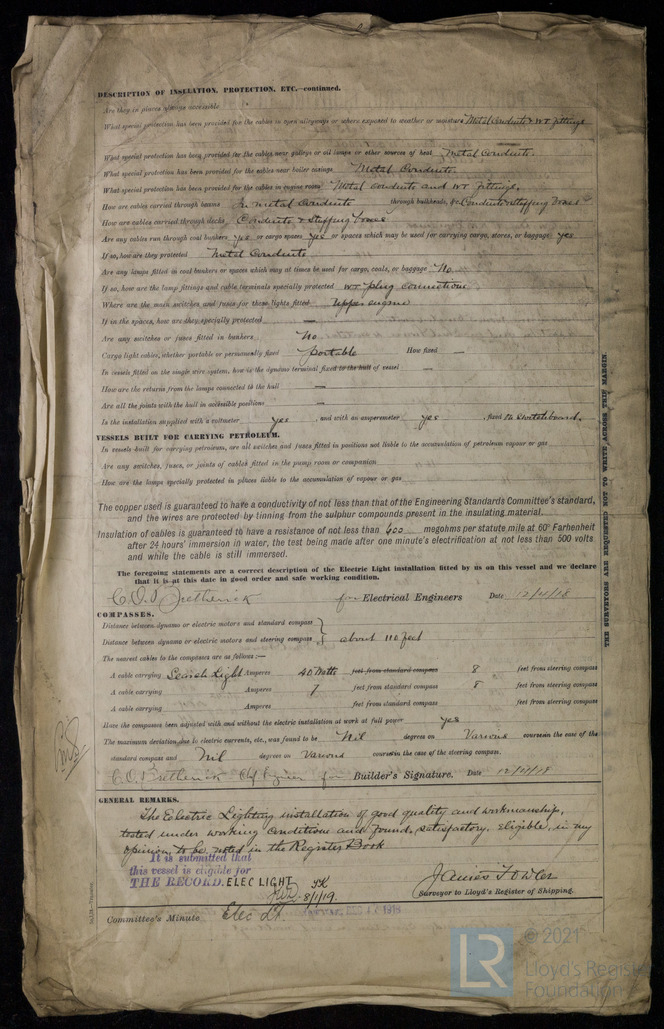 DESCRIPTION OF INSULATION, PROTECTION, ETC.—continued.
Are they in places always accessible
What special protection has been provided for the cables in open alleyways or where exposed to weather or moisture Metal Conduits & WT fittings
What special protection has been provided for the cables near galleys or oil lamps or other sources of heat Metal Conduits
What special protection has been provided for the cables near boiler casings Metal Conduits
What special protection has been provided for the cables in engine room Metal conduits and WT fittings.
How are cables carried through beams In metal Conduits through bulkheads, &c. Conduits & Stuffing boxes
How are cables carried through decks Conduits & Stuffing boxes
Are any cables run through coal bunkers yes or cargo spaces yes or spaces which may be used for carrying cargo, stores, or baggage yes
If so, how are they protected Metal Conduits
Are any lamps fitted in coal bunkers or spaces which may at times be used for cargo, coals, or baggage No.
If so, how are the lamp fittings and cable terminals specially protected WT plug connections
Where are the main switches and fuses for these lights fitted Upper engine
If in the spaces, how are they specially protected —
Are any switches or fuses fitted in bunkers No
Cargo light cables, whether portable or permanently fixed portable How fixed —
In vessels fitted on the single wire system, how is the dynamo terminal fixed to the hull of vessel —
How are the returns from the lamps connected to the hull —
Are all the joints with the hull in accessible positions —
Is the installation supplied with a voltmeter yes , and with an amperemeter yes , fixed on Switchboard.
VESSELS BUILT FOR CARRYING PETROLEUM.
In vessels built for carrying petroleum, are all switches and fuses fitted in positions not liable to the accumulation of petroleum vapour or gas
Are any switches, fuses, or joints of cables fitted in the pump room or companion
How are the lamps specially protected in places liable to the accumulation of vapour or gas
The copper used is guaranteed to have a conductivity of not less than that of the Engineering Standards Committee's standard,
and the wires are protected by tinning from the sulphur compounds present in the insulating material.
Insulation of cables is guaranteed to have a resistance of not less than 600 megohms per statute mile at 60° Farhenheit
after 24 hours' immersion in water, the test being made after one minute's electrification at not less than 500 volts
and while the cable is still immersed.
The foregoing statements are a correct description of the Electric Light installation fitted by us on this vessel and we declare
that it is at this date in good order and safe working condition.
for Electrical Engineers Date
COMPASSES.
Distance between dynamo or electric motors and standard compass
Distance between dynamo or electric motors and steering compass about 110 feet
The nearest cables to the compasses are as follows:—
A cable carrying Search Light Amperes 40 Watts feet from standard compass 8 feet from steering compass
A cable carrying Amperes 7 feet from standard compass 8 feet from steering compass
A cable carrying Amperes feet from standard compass feet from steering compass
Have the compasses been adjusted with and without the electric installation at work at full power yes
The maximum deviation due to electric currents, etc., was found to be Nil degrees on Various courses in the case of the
standard compass and Nil degrees on Various courses in the case of the steering compass.
for Builder's Signature. Date
GENERAL REMARKS.
The Electric Lighting installation of good quality and workmanship,
tested under working conditions and found, satisfactory, eligible, in my
opinion, to be noted in the Register Book
It is submitted that
this vessel is eligible for
THE RECORD. ELEC LIGHT
8/1/19.
James Fowler
Surveyor to Lloyd's Register of Shipping.
Committee's Minute Elec Lt.
THE SURVEYORS ARE REQUESTED NOT TO WRITE ACROSS THIS MARGIN
LR
© 2021
Lloyd's Register
Foundation